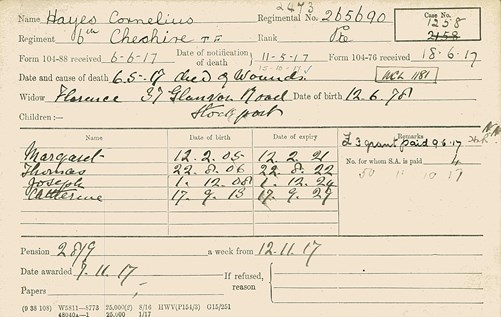 2473
Name Hayes Cornelius Regimental No. 265690 Case No. 1258
2158
Regiment 6th Cheshire T.F. Rank Pte
Form 104-88 received 6-6-17 Date of notification of death 11-5-17 Form 104-76 received 18-6-17
Date and cause of death 6.5.17 died of Wounds
Widow Florence 37 Road Date of birth 12.6.78
Children:— Stockport
Name Date of birth Date of expiry Remarks
Margaret 12.2.05 12.2.21 £3 grant paid 9.6.17
Thomas 22.8.06 22.8.22 No. for whom S.A. is paid 4
Joseph 1.12.08 1.12.24
Catherine 17.9.13 17.9.29
Pension 28/9 a week from 12.11.17
Date awarded 7.11.17 If refused, reason
Papers
(9 38 108) W5811—8773 25,000(2) 8/16 HWV(P154/3) G15/251
48040A—1 25,000 1/17